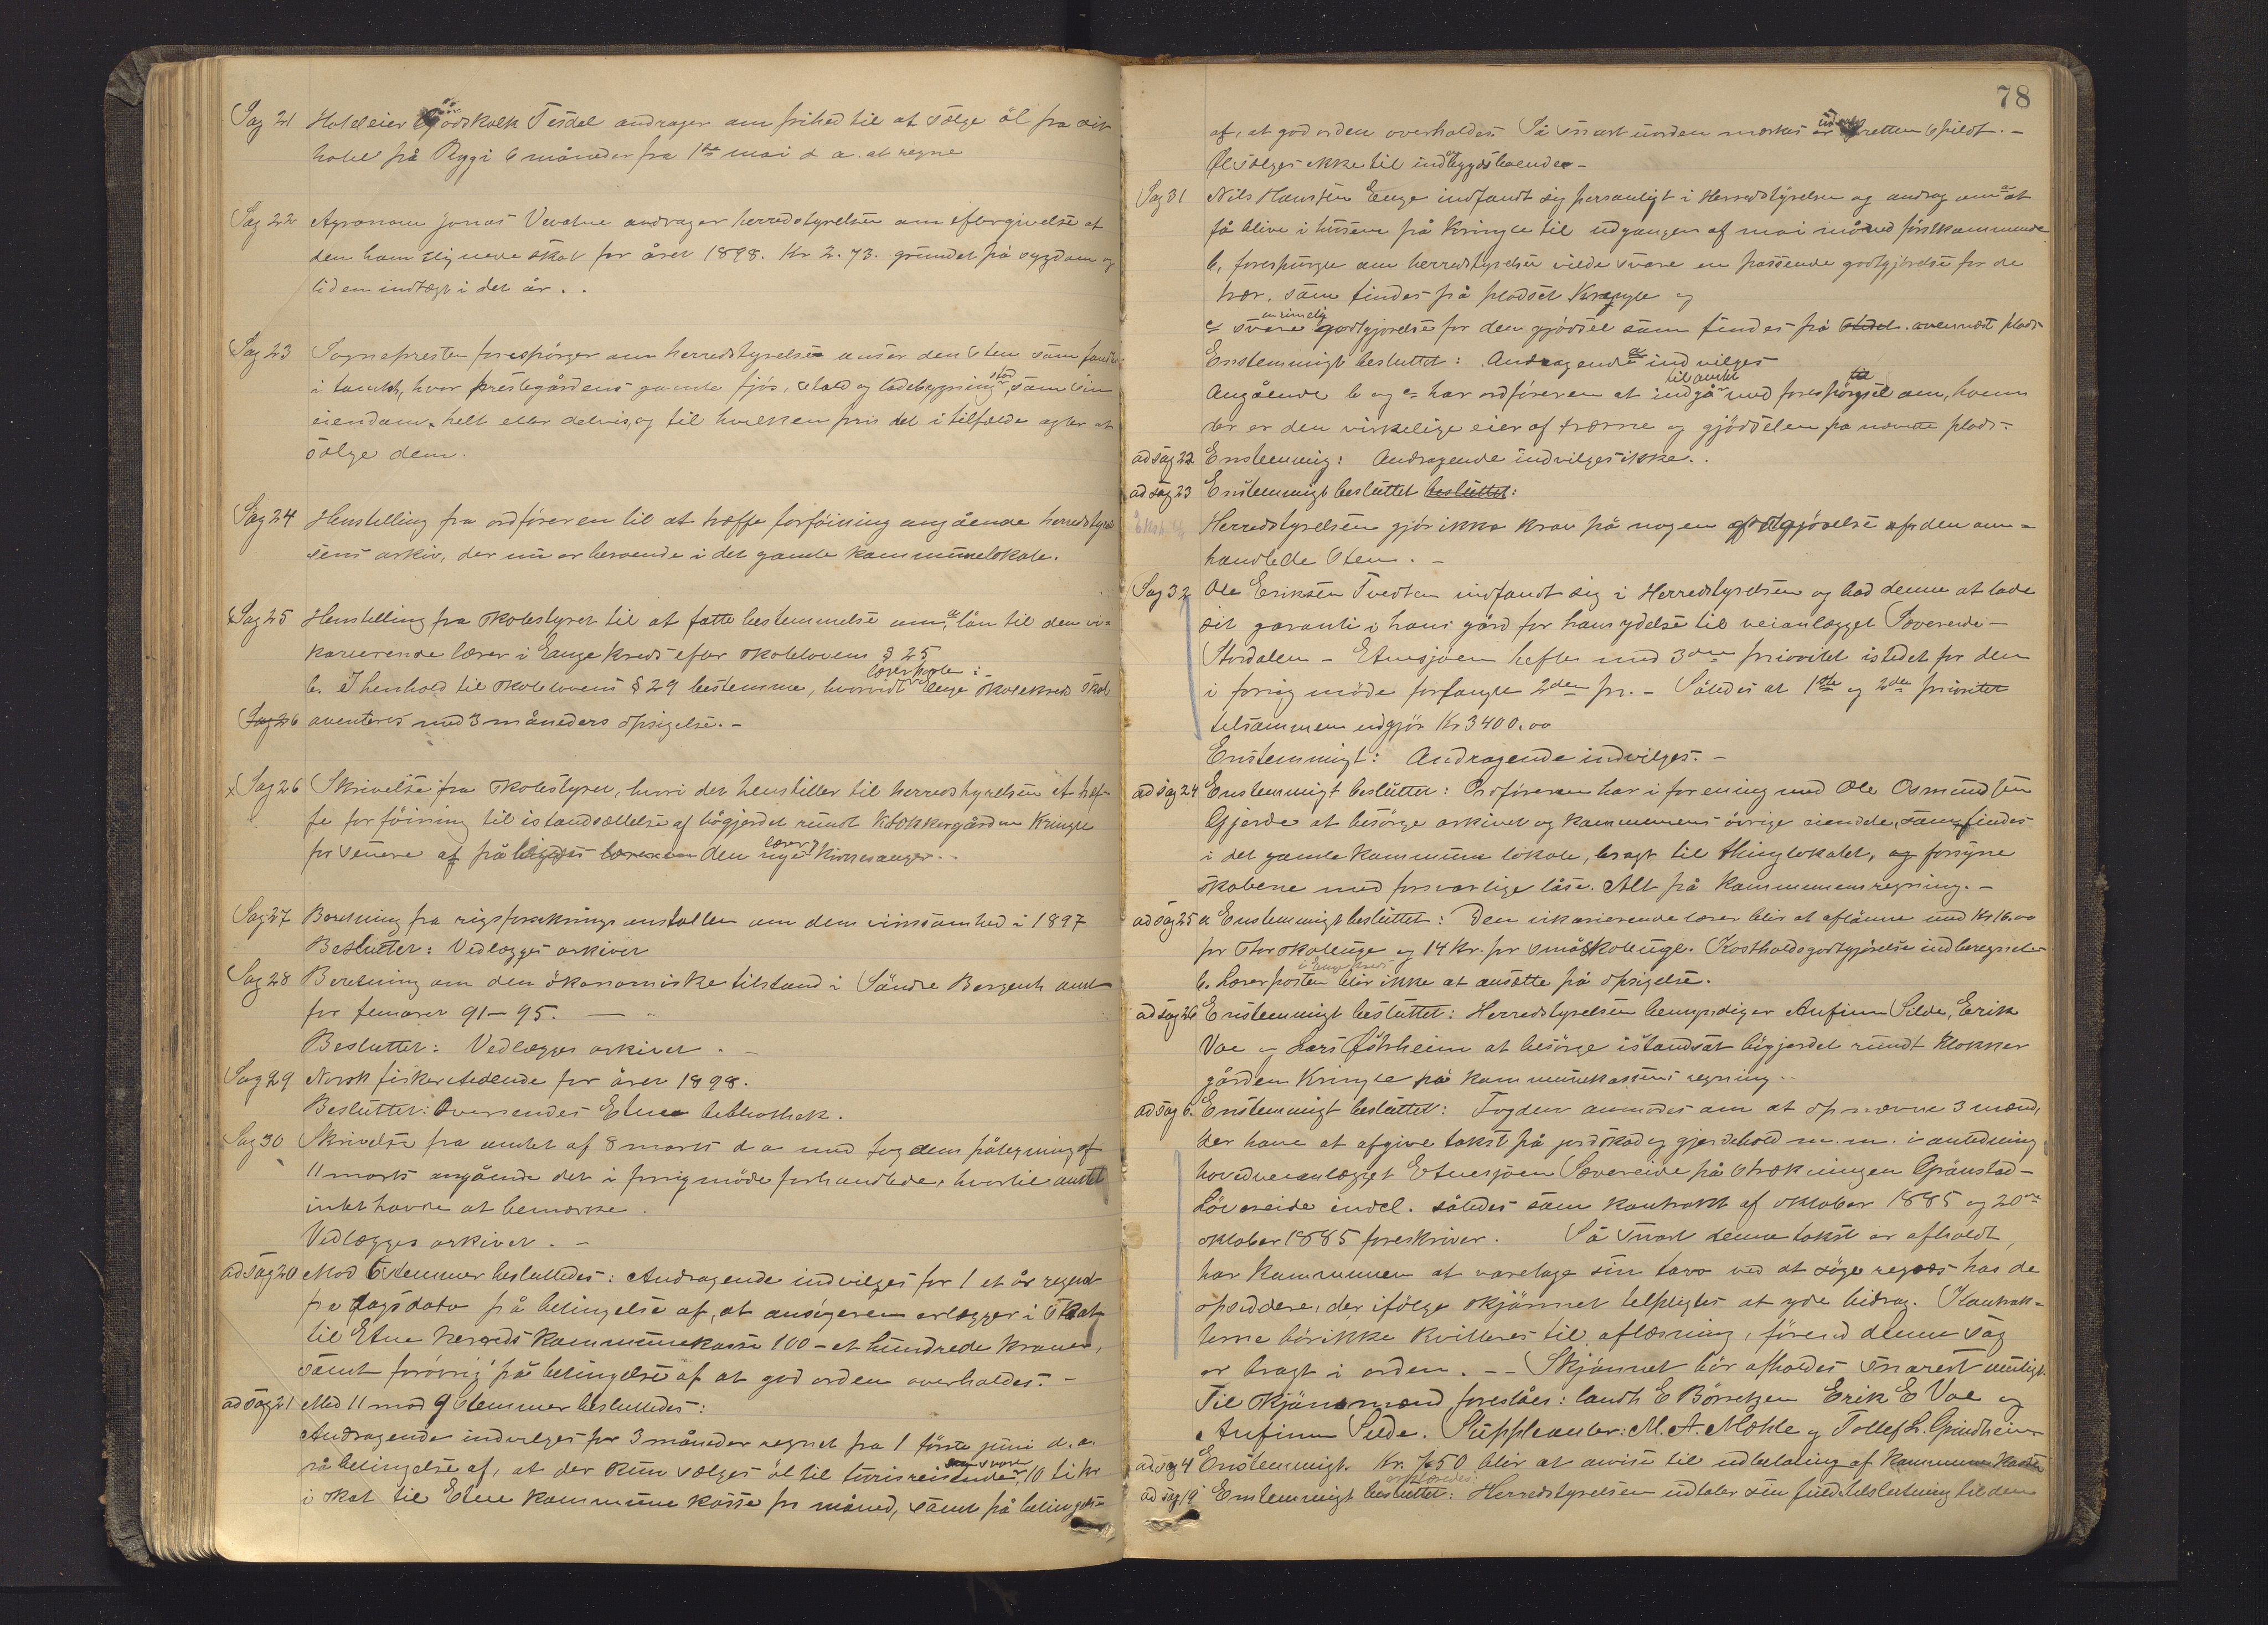 Sag 21 Hoteleier Gödskalk Tesdal andrager om frihed til at sælge öl fra sit
hotel på Rygg i 6 måneder fra 1ste mai d a. at regne
Sag 22 Agronom Jonas Vevatne andrager herredstyrelsen om eftergivelse af
den ham ilignede skat for året 1898. Kr 2.73. grundet på sygdom og
liden indtægt i det år..
Sag 23 Sognepresten forespörger om herredstyrelsen anser den sten som fandtes
i tomten, hvor prestegårdens gamle fjös, stald og ladebygning stod, som sin
eiendom, helt eller delvis, og til hvilken pris det i tilfælde agter at
sælge dem.
Sag 24 Henstilling fra ordföreren til at træffe forföining angående herredstyrel
sens arkiv, der nu er beroende i det gamle kommunelokale.
Sag 25 Henstilling fra skolestyret til at fatte bestemmelse om, a. lön til den vi-
karierende lærer i Enge kreds efter skolelovens § 25
b. I henhold til skolelovens § 29 bestemme, hvorvidt lærerposten i Enge skolekreds skal
Sag 26 aventeres med 3 måneders opsigelse. -
Sag 26 Skrivelse fra skolestyret, hvori det henstiller til herredstyrelsen at træf-
fe forföining til istandsættelse af bögjerdet rundt klokkergården Kringle
for senere af på den nye lærer og kirkesanger..
Sag 27 Beretning fra rigsforsikringsanstalten om dens virksomhed i 1897
Besluttet: Vedlægges arkivet
Sag 28 Beretning om den ökonomiske tilstand i Söndre Bergenh amt
for femåret 91-95. —
Besluttet: Vedlægges arkivet. -
Sag 29 Norsk fiskeritidende for året 1898.
Besluttet: Oversendes Etne bibliothek.
Sag 30 Skrivelse fra amtet af 8 marts d a med fogdens påtegning af
11 marts angående det i forrig möde forhandlede, hvortil amtet
intet havde at bemærke.
Vedlægges arkivet. -
ad sag 20 Mod 6 stemmer besluttedes: Andragende indvilges for 1 et år regnet
fra dagsdato på betingelse af, at ansögeren erlægger i skat
til Etne herreds kommunekasse 100 - et hundrede kroner,
samt forövrig på betingelse af at god orden overholdes. -
ad sag 21 Med 11 mod 9 stemmer besluttedes:
Andragende indvilges for 3 måneder regnet fra 1 förste juni d.a.
på betingelse af, at der kun sælges öl til turistreisende, 10 ti kr
i skat til Etne kommune kasse pr måned, samt på betingelse
78
af, at god orden overholdes. Så snart uorden mærkes er udsalgsretten spildt. -
Öl sælges ikke til indbygdsboende -
Sag 31 Nils Hansen Enge indfandt sig personligt i Herredstyrelsen og androg om a at
få blive i husene på Kringle til udgangen af mai måned förstkommende
b, forespurgte om herredstyrelsen vilde svare en passende godtgjörelse for de
trær, som findes på pladset Kringle og
c svare en rimelig godtgjörelse for den gjödsel som findes på stedet. ovennævt plads
Enstemmigt besluttet: Andragende a indvilges
Angående b og c har ordföreren at indgå til amtet med forespörgsel om, hvem
der er den virkelige eier af trærne og gjödselen på nævnte plads.
ad sag 22 Enstemmig: Andragende indvilges ikke..
ad sag 23 Enstemmigt besluttet besluttet:
Herredstyrelsen gjör ikke krav på nogen godtgjörelse af den om-
handlede sten. -
Sag 32 Ole Eriksen Tvedten indfandt sig i Herredstyrelsen og bad denne at lade
sit garanti i hans gård for hans ydelse til veianlægget Sævereide -
Stordalen - Etnesjöen hefte med 3die prioritet istedet for den
i forrig möde forlangte 2den pr. - Således at 1ste og 2den prioritet
tilsammen udgjör Kr 3400.00
Enstemmigt: Andragende indvilges. -
ad sag 24 Enstemmigt besluttet: Ordföreren har i forening med Ole Osmundsen
Gjerde at besörge arkivet og kommunens övrige eiendele, som findes
i det gamle kommune lokale, bragt til thinglokalet, og forsyne
skabene med forsvarlige låse. Alt på kommunens regning. -
ad sag 25 a Enstemmigt besluttet: Den vikarierende lærer blir at aflönne med Kr 16.00
pr storskoleuge og 14 kr. pr småskoleuge. Kostholdsgodtgjörelse indberegnet
b. Lærerposten i Enge kreds blir ikke at ansætte på opsigelse.
ad sag 26 Enstemmigt besluttet: Herredstyrelsen bemyndiger Anfinn Silde, Erik
Vae og Lars Fitsheim at besörge istandsat bögjerdet rundt klokker
gården Kringle på kommunekassens regning..
ad sag 6. Enstemmigt besluttet: Fogden anmodes om at opnævne 3 mænd,
der have at afgive takst på jordskad og gjerdehold m.m. i anledning
hovedveianlægget Etnesjöen Sævereide på strækningen Grönstad -
Lövereide indel. således som kontrakt af oktober 1885 og 20de
oktober 1885 foreskriver. Så snart denne takst er afholdt,
har kommunen at varetage sin tarv ved at söge regres hos de
opsiddere, der ifölge skjönnet tilpligtes at yde bidrag. Kontrak-
terne bör ikke kvitteres til aflæsning, förend denne sag
er bragt i orden. -- Skjönnet bör afholdes snarest muligt.
Til skjönsmænd foreslåes: landh E Börretzen Erik E Vae og
Anfinn Silde. Suppleanter: M. A. Mæhle og Tollef L. Grindheim
ad sag 4 Enstemmigt. Kr. 7.50 blir at anvise til udbetaling af kommunekassen
ad sag 19 Enstemmigt besluttet: Herredstyrelsen udtaler sin fulde tilslutning til den